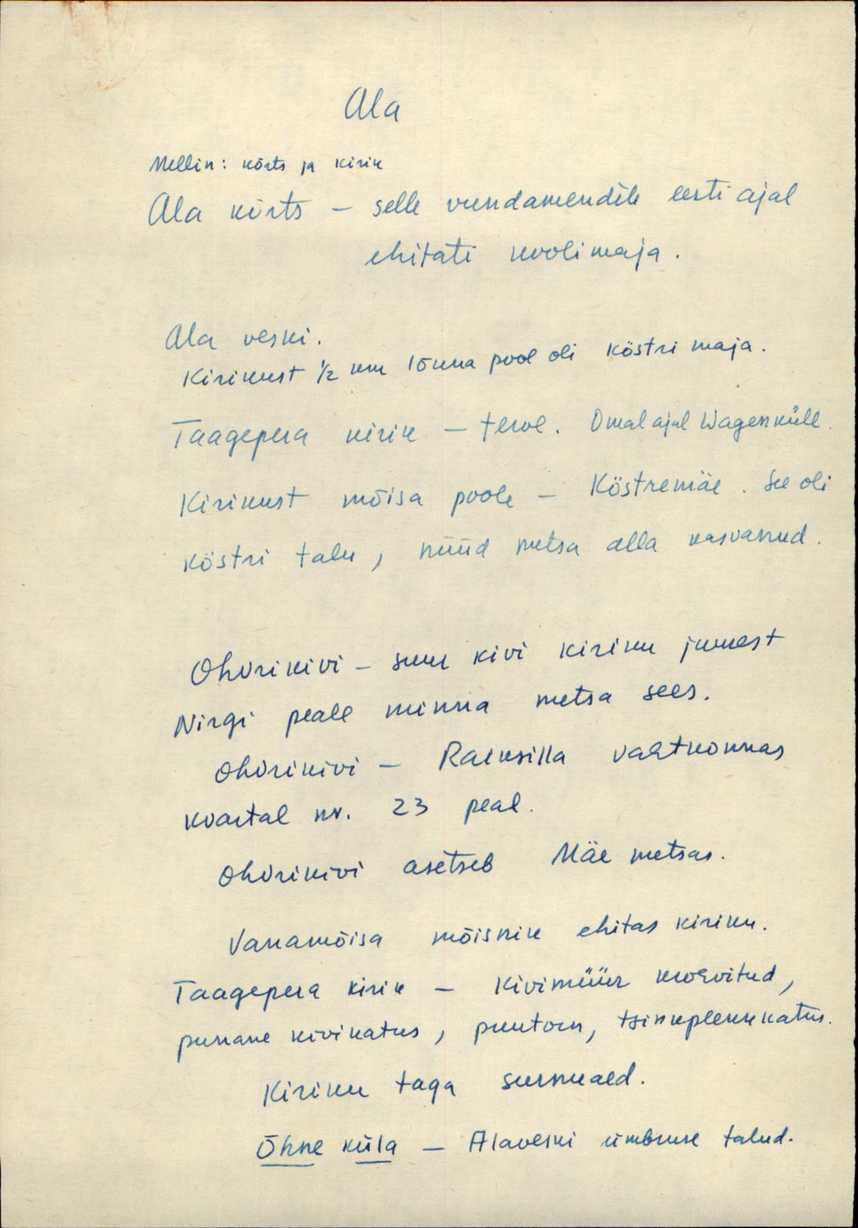 Ala
Mellin: kõrts ja kirik
Ala kõrts – selle vundamendile eesti ajal
ehitati koolimaja.
Ala veski.
Kirikust ½ km lõuna pool oli köstri maja.
Taagepera kirik – terve. Omal ajal Wagenküll.
Kirikust mõisa poole – Köstremäe. See oli
köstri talu, nüüd metsa alla kasvanud.
Ohvrikivi – suur kivi kiriku juurest
Nirgi peale minna metsa sees.
Ohvrikivi – Raiksilla vahtkonnas
kvartal nr. 23 peal.
Ohvrikivi asetseb Mäe metsas.
Vanamõisa mõisnik ehitas kiriku.
Taagepera kirik – Kivimüür krohvitud,
punane kivikatus, puutorn, tsinkplekk katus.
Kiriku taga surnuaed.
Õhne küla – Alaveski ümbruse talud.